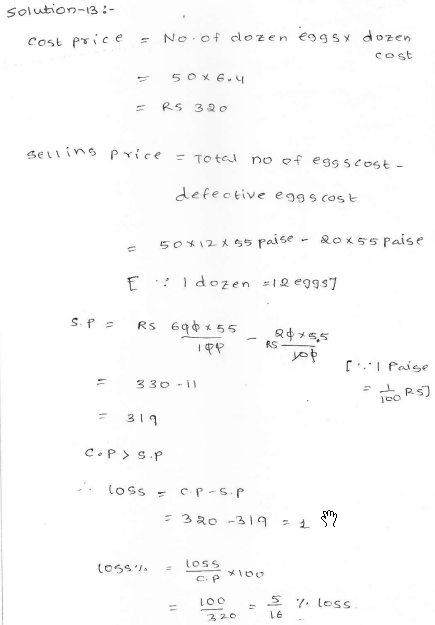 Solution-13:-
Cost price = No. of dozen eggs x dozen
cost
= 50 x 6.4
= RS 320
Selling price = Total no of eggs cost -
defective eggs cost
= 50x12 x 55 paise - 20x55 paise
[ ∵ 1 dozen = 12 eggs]
S.P = RS 600 x 55 / 100 - RS 20 x 55 / 100
[∵ 1 Paise
= 1/100 RS]
= 330 - 11
= 319
C.P > S.P
∴ loss = C.P - S.P
= 320 - 319 = 1
loss % = loss / C.P x 100
= 100 / 320 = 5/16 % loss.